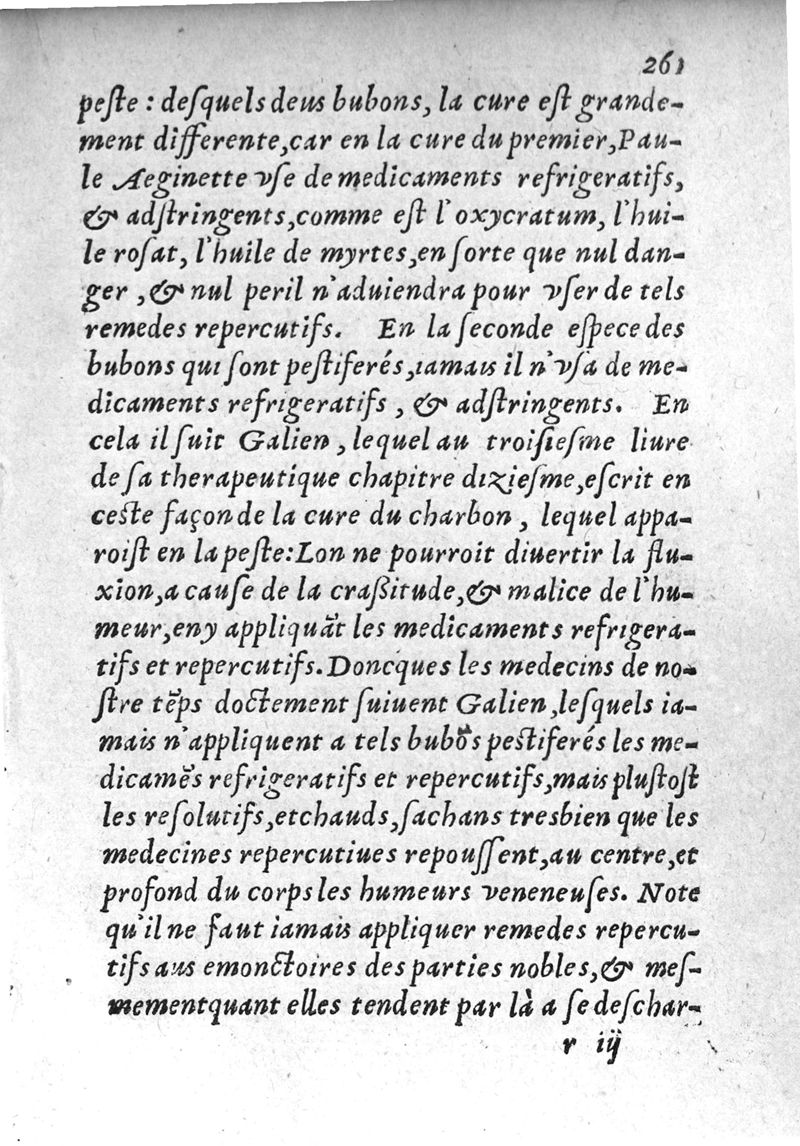 261
peſte : deſquels deus bubons, la cure eſt grande-
ment differente,car en la cure du premier,Pau-
le Aeginette vſe de medicaments refrigeratifs,
& adſtringents,comme eſt l'oxycratum, l'hui-
le roſat, l'huile de myrtes,en ſorte que nul dan-
ger ,& nul peril n'aduiendra pour vſer de tels
remedes repercutifs. En la ſeconde eſpece des
bubons qui ſont peſtiferés,iamais il n'vſa de me-
dicaments refrigeratifs , & adſtringents. En
cela il ſuit Galien , lequel au troiſieſme liure
de ſa therapeutique chapitre dizieſme,eſcrit en
ceſte façon de la cure du charbon , lequel appa-
roiſt en la peſte:Lon ne pourroit diuertir la flu-
xion,a cauſe de la craßitude,& malice de l'hu-
meur,en y appliquãt les medicaments refrigera-
tifs et repercutifs.Doncques les medecins de no-
ſtre tẽps doctement ſuiuent Galien,leſquels ia-
mais n'appliquent a tels bubõs peſtiferés les me-
dicamẽs refrigeratifs et repercutifs,mais pluſtoſt
les reſolutifs,et chauds,ſachans tresbien que les
medecines repercutiues repouſſent,au centre,et
profond du corps les humeurs veneneuſes. Note
qu'il ne faut iamais appliquer remedes repercu-
tifs aus emonctoires des parties nobles,& meſ-
mement quant elles tendent par là a ſe deſchar-
r iij